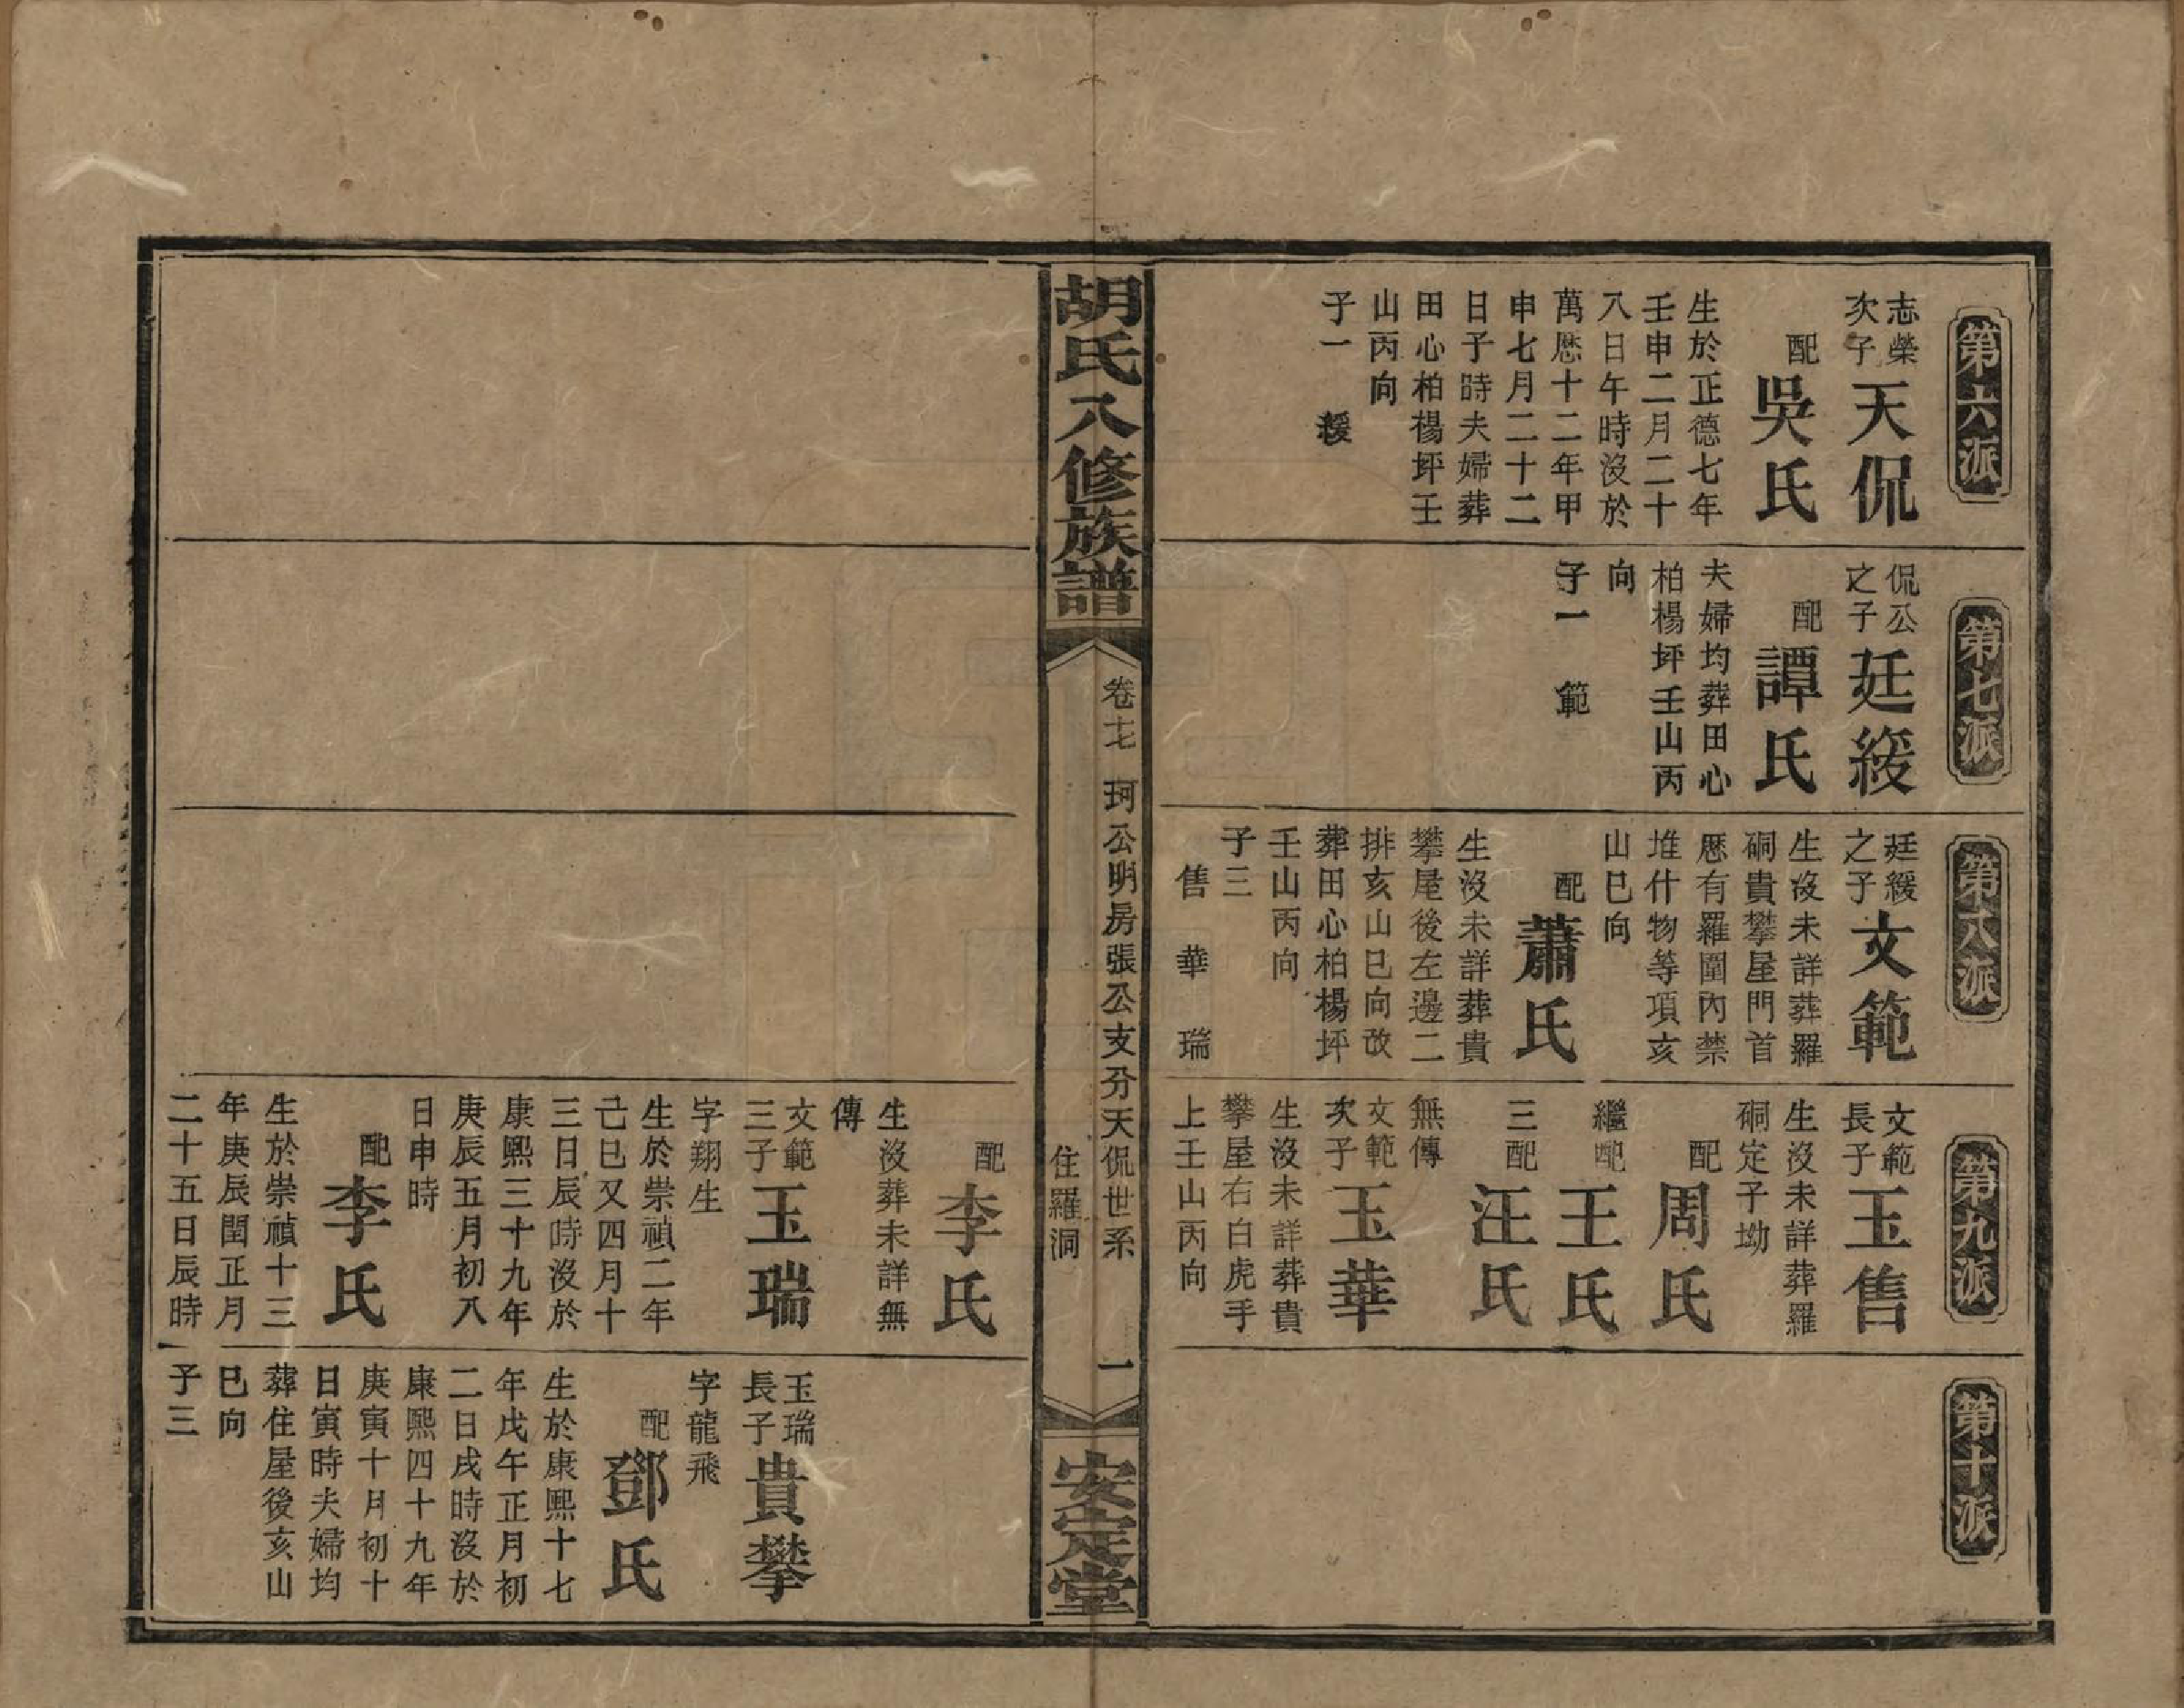 第六派
志榮
次子
天侃
配
吳氏
生於正德七年
壬申二月二十
八日午時沒於
萬厯十二年甲
申七月二十二
日子時夫婦葬
田心柏楊坪壬
山丙向
子一 緩
第七派
侃公
之子
廷緩
配
譚氏
夫婦均葬田心
柏楊坪壬山丙
向
子一 範
第八派
廷緩
之子
文範
生沒未詳葬羅
硐貴攀屋門首
厯有羅圍內禁
堆什物等項亥
山巳向
配
蕭氏
生沒未詳葬貴
攀屋後左邊二
排亥山巳向改
葬田心柏楊坪
壬山丙向
子三
售 華 瑞
第九派
文範
長子
玉售
生沒未詳葬羅
硐定子坳
配
周氏
繼配
王氏
三配
汪氏
無傳
文範
次子
玉華
生沒未詳葬貴
攀屋右白虎手
上壬山丙向
第十派
胡氏八修族譜
卷十七 珂公明房張公支分天侃世系 一
住羅洞
安定堂
配
李氏
生沒葬未詳無
傳
文範
三子
玉瑞
字翔生
生於崇禎二年
己巳又四月十
三日辰時沒於
康熙三十九年
庚辰五月初八
日申時
配
李氏
生於崇禎十三
年庚辰閏正月
二十五日辰時
玉瑞
長子
貴攀
字龍飛
配
鄧氏
生於康熙十七
年戊午正月初
二日戌時沒於
康熙四十九年
庚寅十月初十
日寅時夫婦均
葬住屋後亥山
巳向
子三